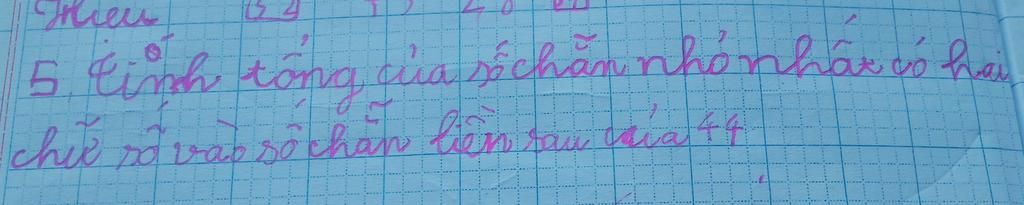 5. tính tổng của số chẵn nhỏ nhất có hai
chữ số vào số chẵn liền sau của 44